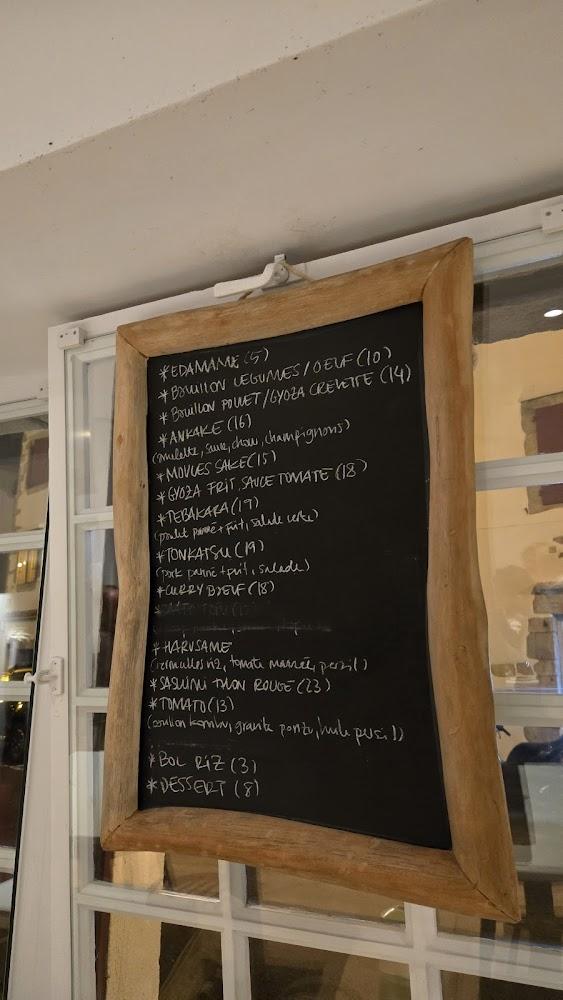 *EDAMAME (5)
*BOUILLON LEGUMES / OEUF (10)
*BOUILLON POULET / GYOZA CREVETTE (14)
*ANKAKE (16)
(omelette, sauce, chou, champignons)
*MOULES SAKE (15)
*GYOZA FRIT, SAUCE TOMATE (18)
*TEBAKARA (19)
(poulet pané + frit, salade verte)
*TONKATSU (19)
(pork pané + frit, salade)
*CURRY BOEUF (18)
*HARUSAME
(vermicelles riz, tomate marinée, persil)
*SASHIMI THON ROUGE (23)
*TOMATO (13)
(bouillon kombu, granite ponzu, huile persil)
*BOL RIZ (3)
*DESSERT (8)